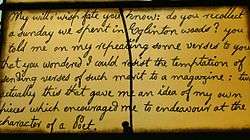 My will o' wisp fate you know: do you recollect
a Sunday we spent in Eglinton woods? you
told me on my repeating some verses to you
that you wondered I could resist the temptation of
sending verses of such merit to a magazine:
actually this that gave me an idea of my own
pieces which encouraged me to endeavour at the
character of a Poet.